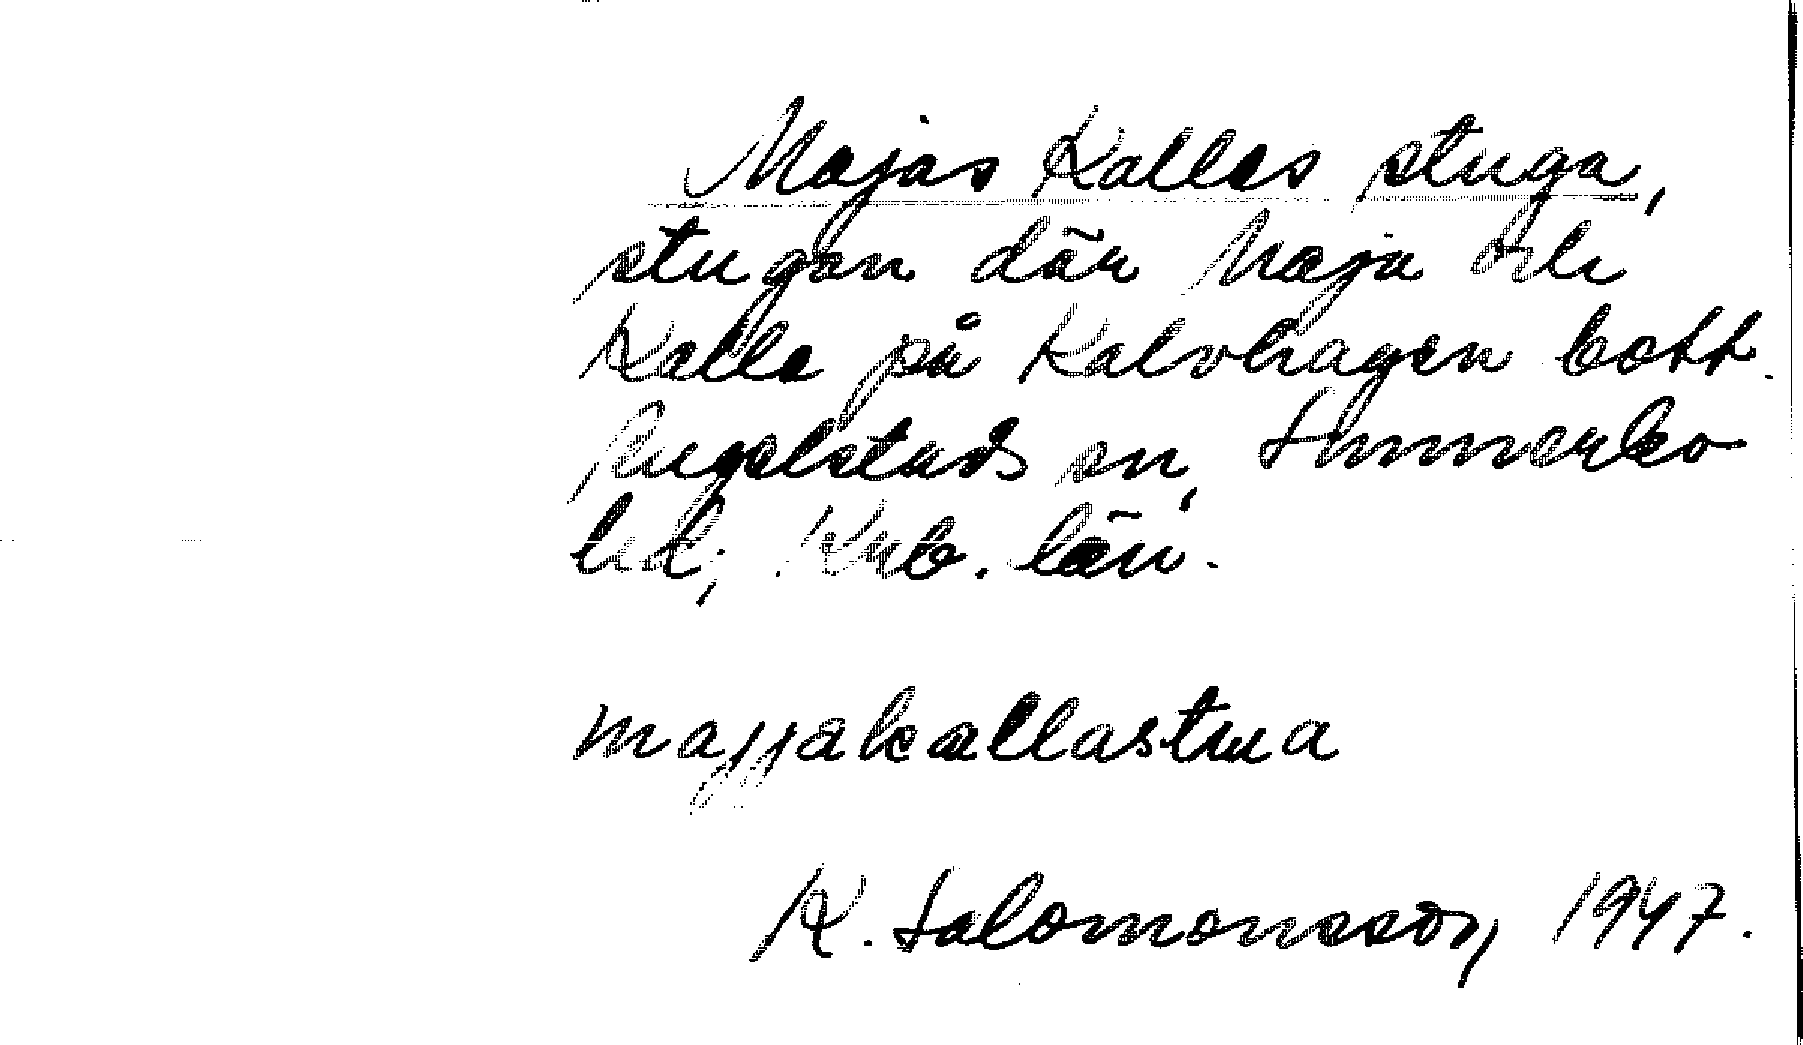 Majas Kalles stuga,
stugan där Maja och
Kalle på Kalvhagen bott.
Ryssby sn, Sunnerbo
hd, Krb. län.
majjakallastua
K. Salomonsson 1947.